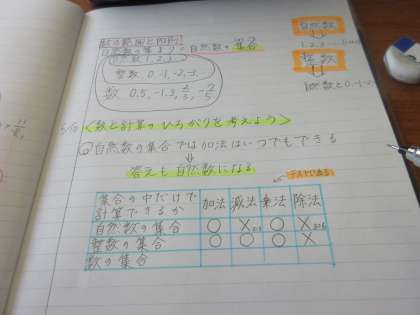 数の範囲と四則
自然数の集まり…自然数の集合
自然数 1, 2, 3, …
整数 0, -1, -2, -3, …
数 0.5, -1.3,
自然数
1, 2, 3,
整数
自然数と0, -1, -2
<数と計算のひろがりを考えよう>
自然数の集合では加法はいつでもできる
答えも自然数になる
テストで出る
集合の中だけで計算できるか 加法 減法 乗法 除法
自然数の集合 ○ × ○ ×
整数の集合 ○ ○ ○ ×
数の集合